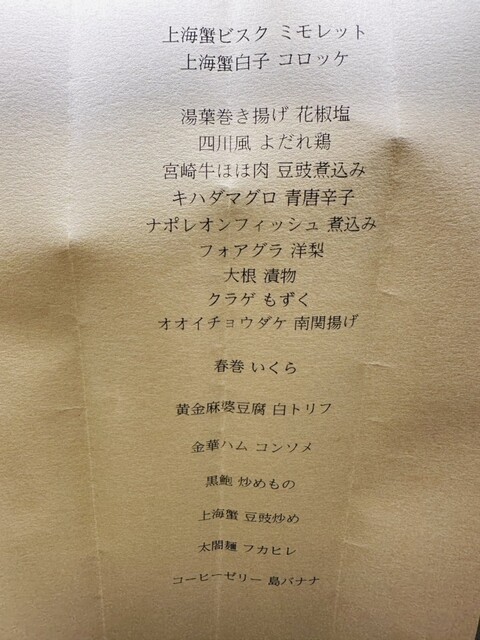 上海蟹ビスク ミモレット
上海蟹白子 コロッケ
湯葉巻き揚げ 花椒塩
四川風 よだれ鶏
宮崎牛ほほ肉 豆豉煮込み
キハダマグロ 青唐辛子
ナポレオンフィッシュ 煮込み
フォアグラ 洋梨
大根 漬物
クラゲ もずく
オオイチョウダケ 南関揚げ
春巻 いくら
黄金麻婆豆腐 白トリフ
金華ハム コンソメ
黒鮑 炒めもの
上海蟹 豆豉炒め
太閤麺 フカヒレ
コーヒーゼリー 島バナナ